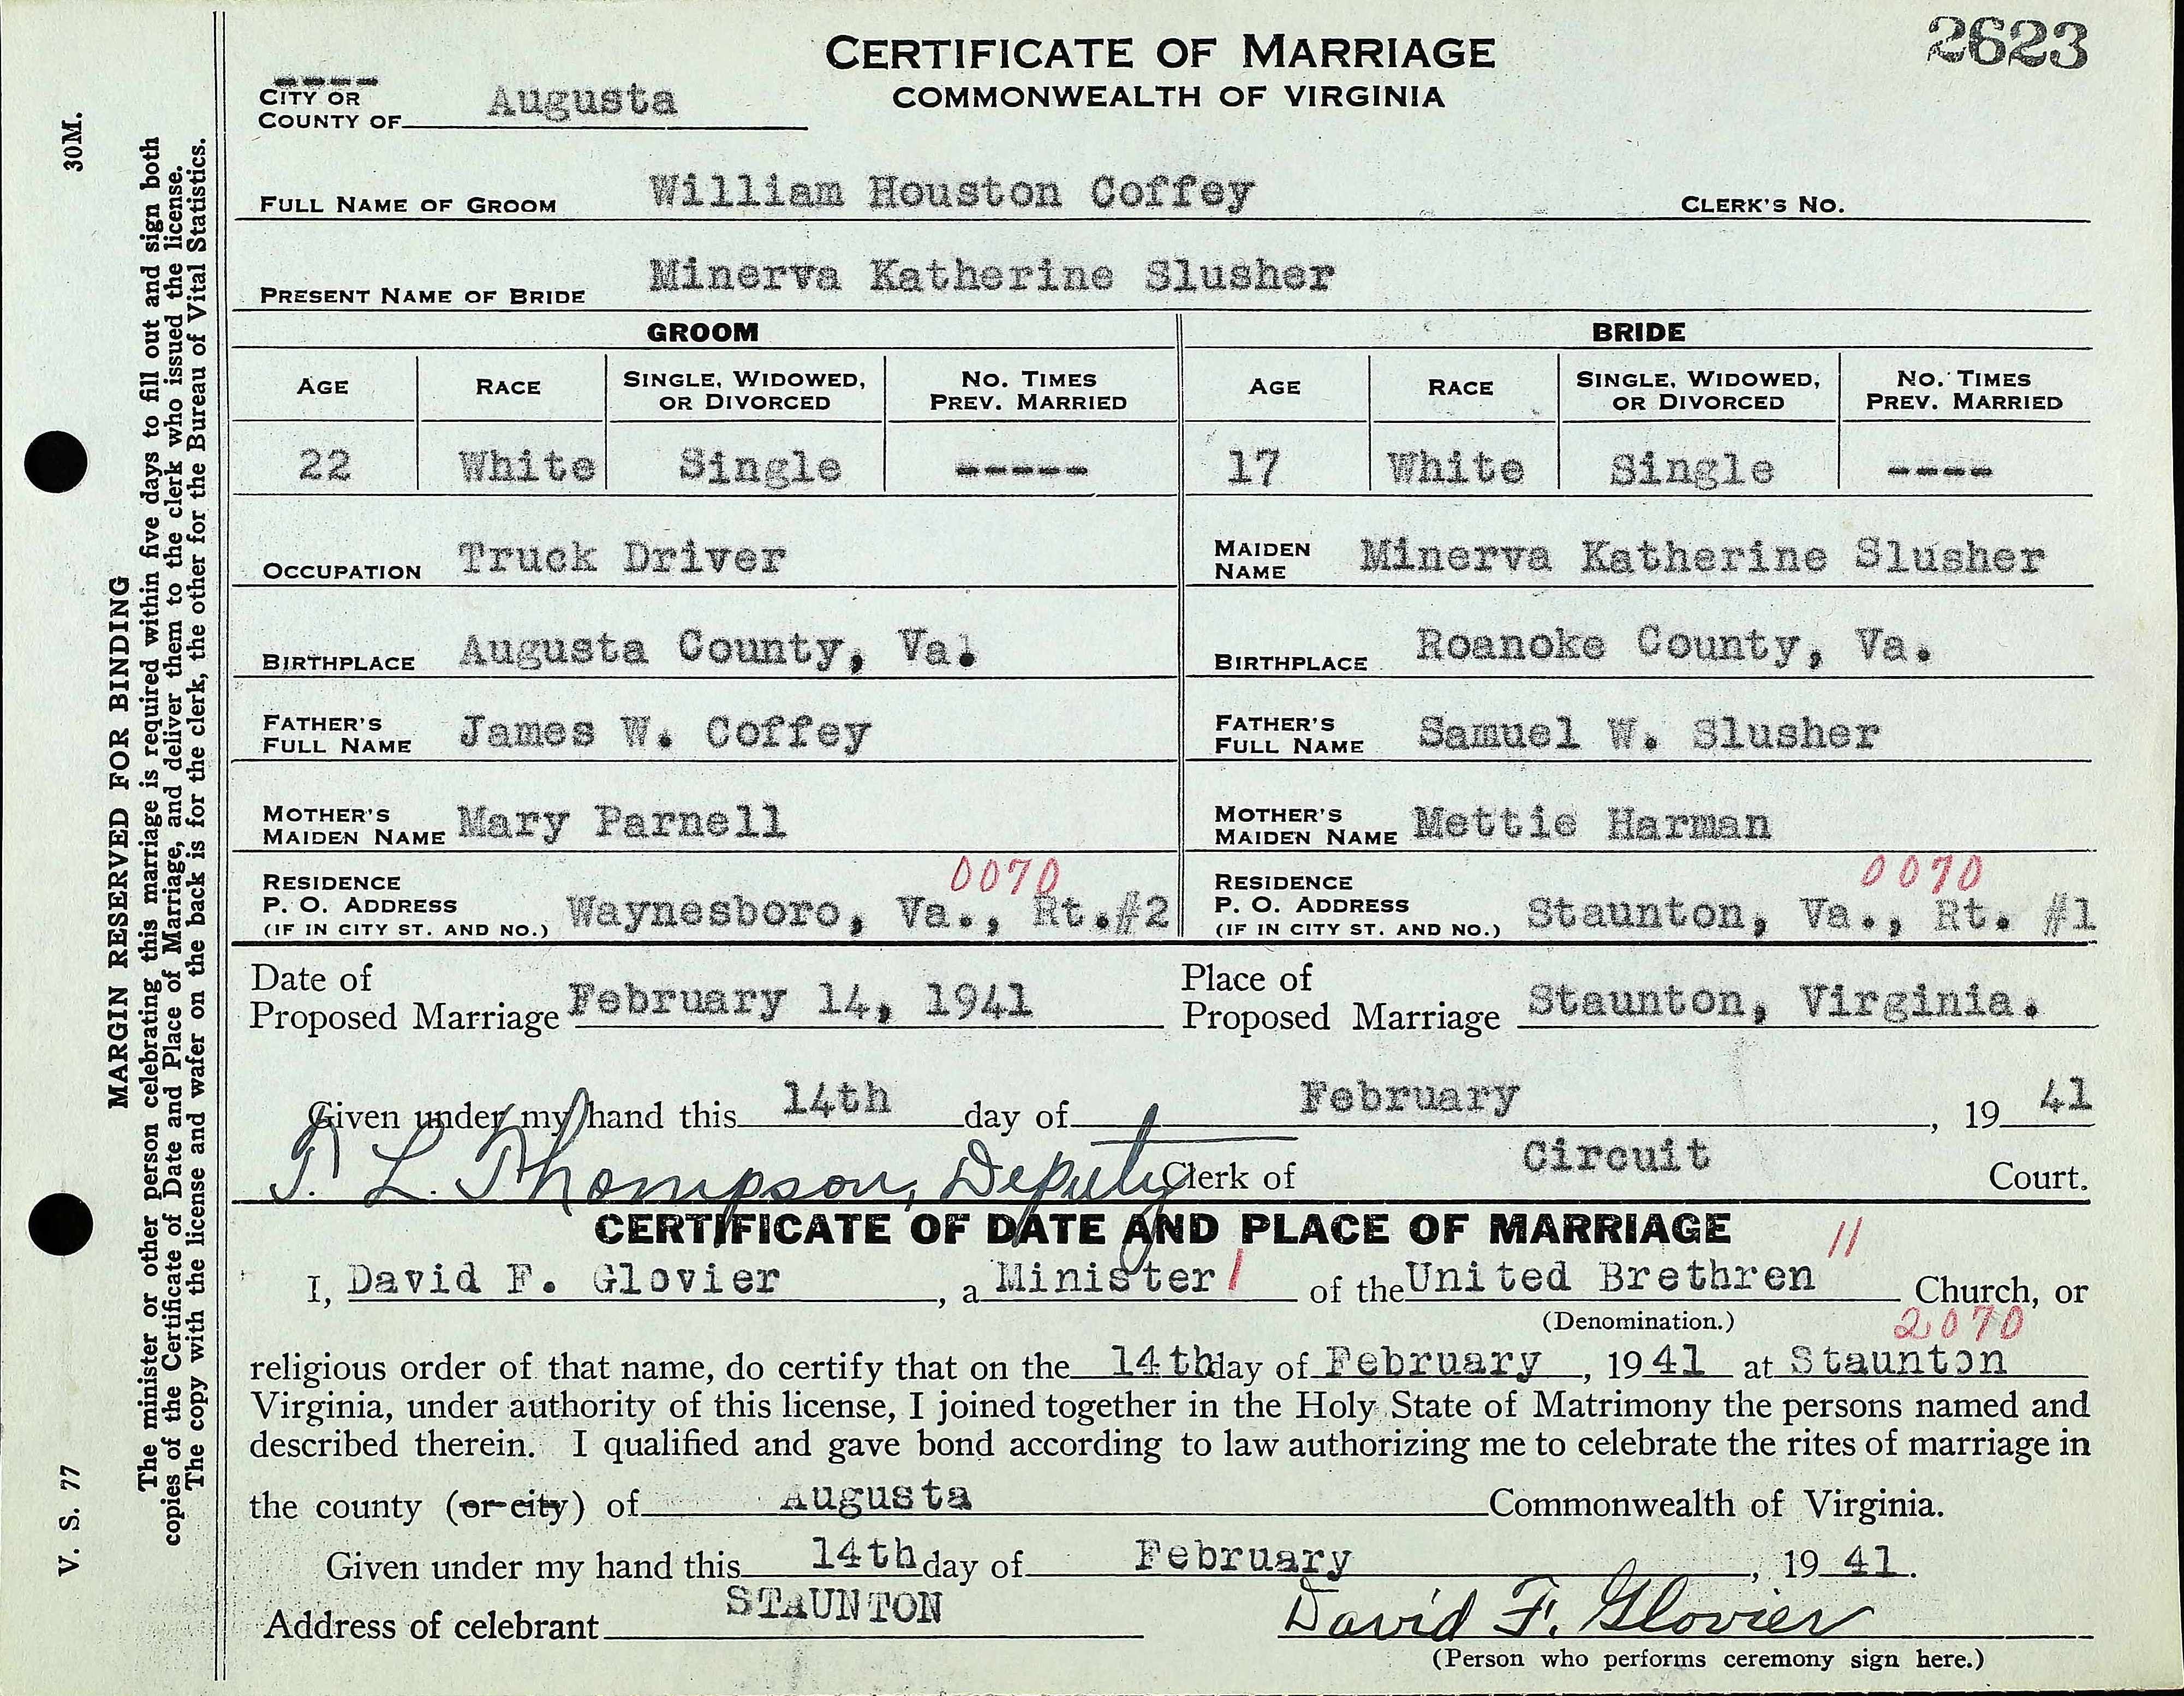 2623
CERTIFICATE OF MARRIAGE
COMMONWEALTH OF VIRGINIA
----
CITY OR
COUNTY OF Augusta
FULL NAME OF GROOM William Houston Coffey CLERK'S NO.
PRESENT NAME OF BRIDE Minerva Katherine Slusher
GROOM BRIDE
AGE RACE SINGLE, WIDOWED, OR DIVORCED NO. TIMES PREV. MARRIED AGE RACE SINGLE, WIDOWED, OR DIVORCED NO. TIMES PREV. MARRIED
22 White Single ----- 17 White Single ----
OCCUPATION Truck Driver MAIDEN NAME Minerva Katherine Slusher
BIRTHPLACE Augusta County, Va. BIRTHPLACE Roanoke County, Va.
FATHER'S FULL NAME James W. Coffey FATHER'S FULL NAME Samuel W. Slusher
MOTHER'S MAIDEN NAME Mary Parnell MOTHER'S MAIDEN NAME Mettie Harman
0070 0070
RESIDENCE P. O. ADDRESS (IF IN CITY ST. AND NO.) Waynesboro, Va., Rt.#2 RESIDENCE P. O. ADDRESS (IF IN CITY ST. AND NO.) Staunton, Va., Rt. #1
Date of Proposed Marriage February 14, 1941 Place of Proposed Marriage Staunton, Virginia.
Given under my hand this 14th day of February, 19 41
T. L. Thompson, Deputy Clerk of Circuit Court.
CERTIFICATE OF DATE AND PLACE OF MARRIAGE
11
I, David F. Glovier, a Minister 1 of the United Brethren Church, or
(Denomination.)
2070
religious order of that name, do certify that on the 14th day of February, 19 41 at Staunton
Virginia, under authority of this license, I joined together in the Holy State of Matrimony the persons named and
described therein. I qualified and gave bond according to law authorizing me to celebrate the rites of marriage in
the county (or city) of Augusta Commonwealth of Virginia.
Given under my hand this 14th day of February, 19 41.
Address of celebrant STAUNTON David F. Glovier
(Person who performs ceremony sign here.)
V. S. 77 30M.
MARGIN RESERVED FOR BINDING
The minister or other person celebrating this marriage is required within five days to fill out and sign both
copies of the Certificate of Date and Place of Marriage, and deliver them to the clerk who issued the license.
The copy with the license and wafer on the back is for the clerk, the other for the Bureau of Vital Statistics.